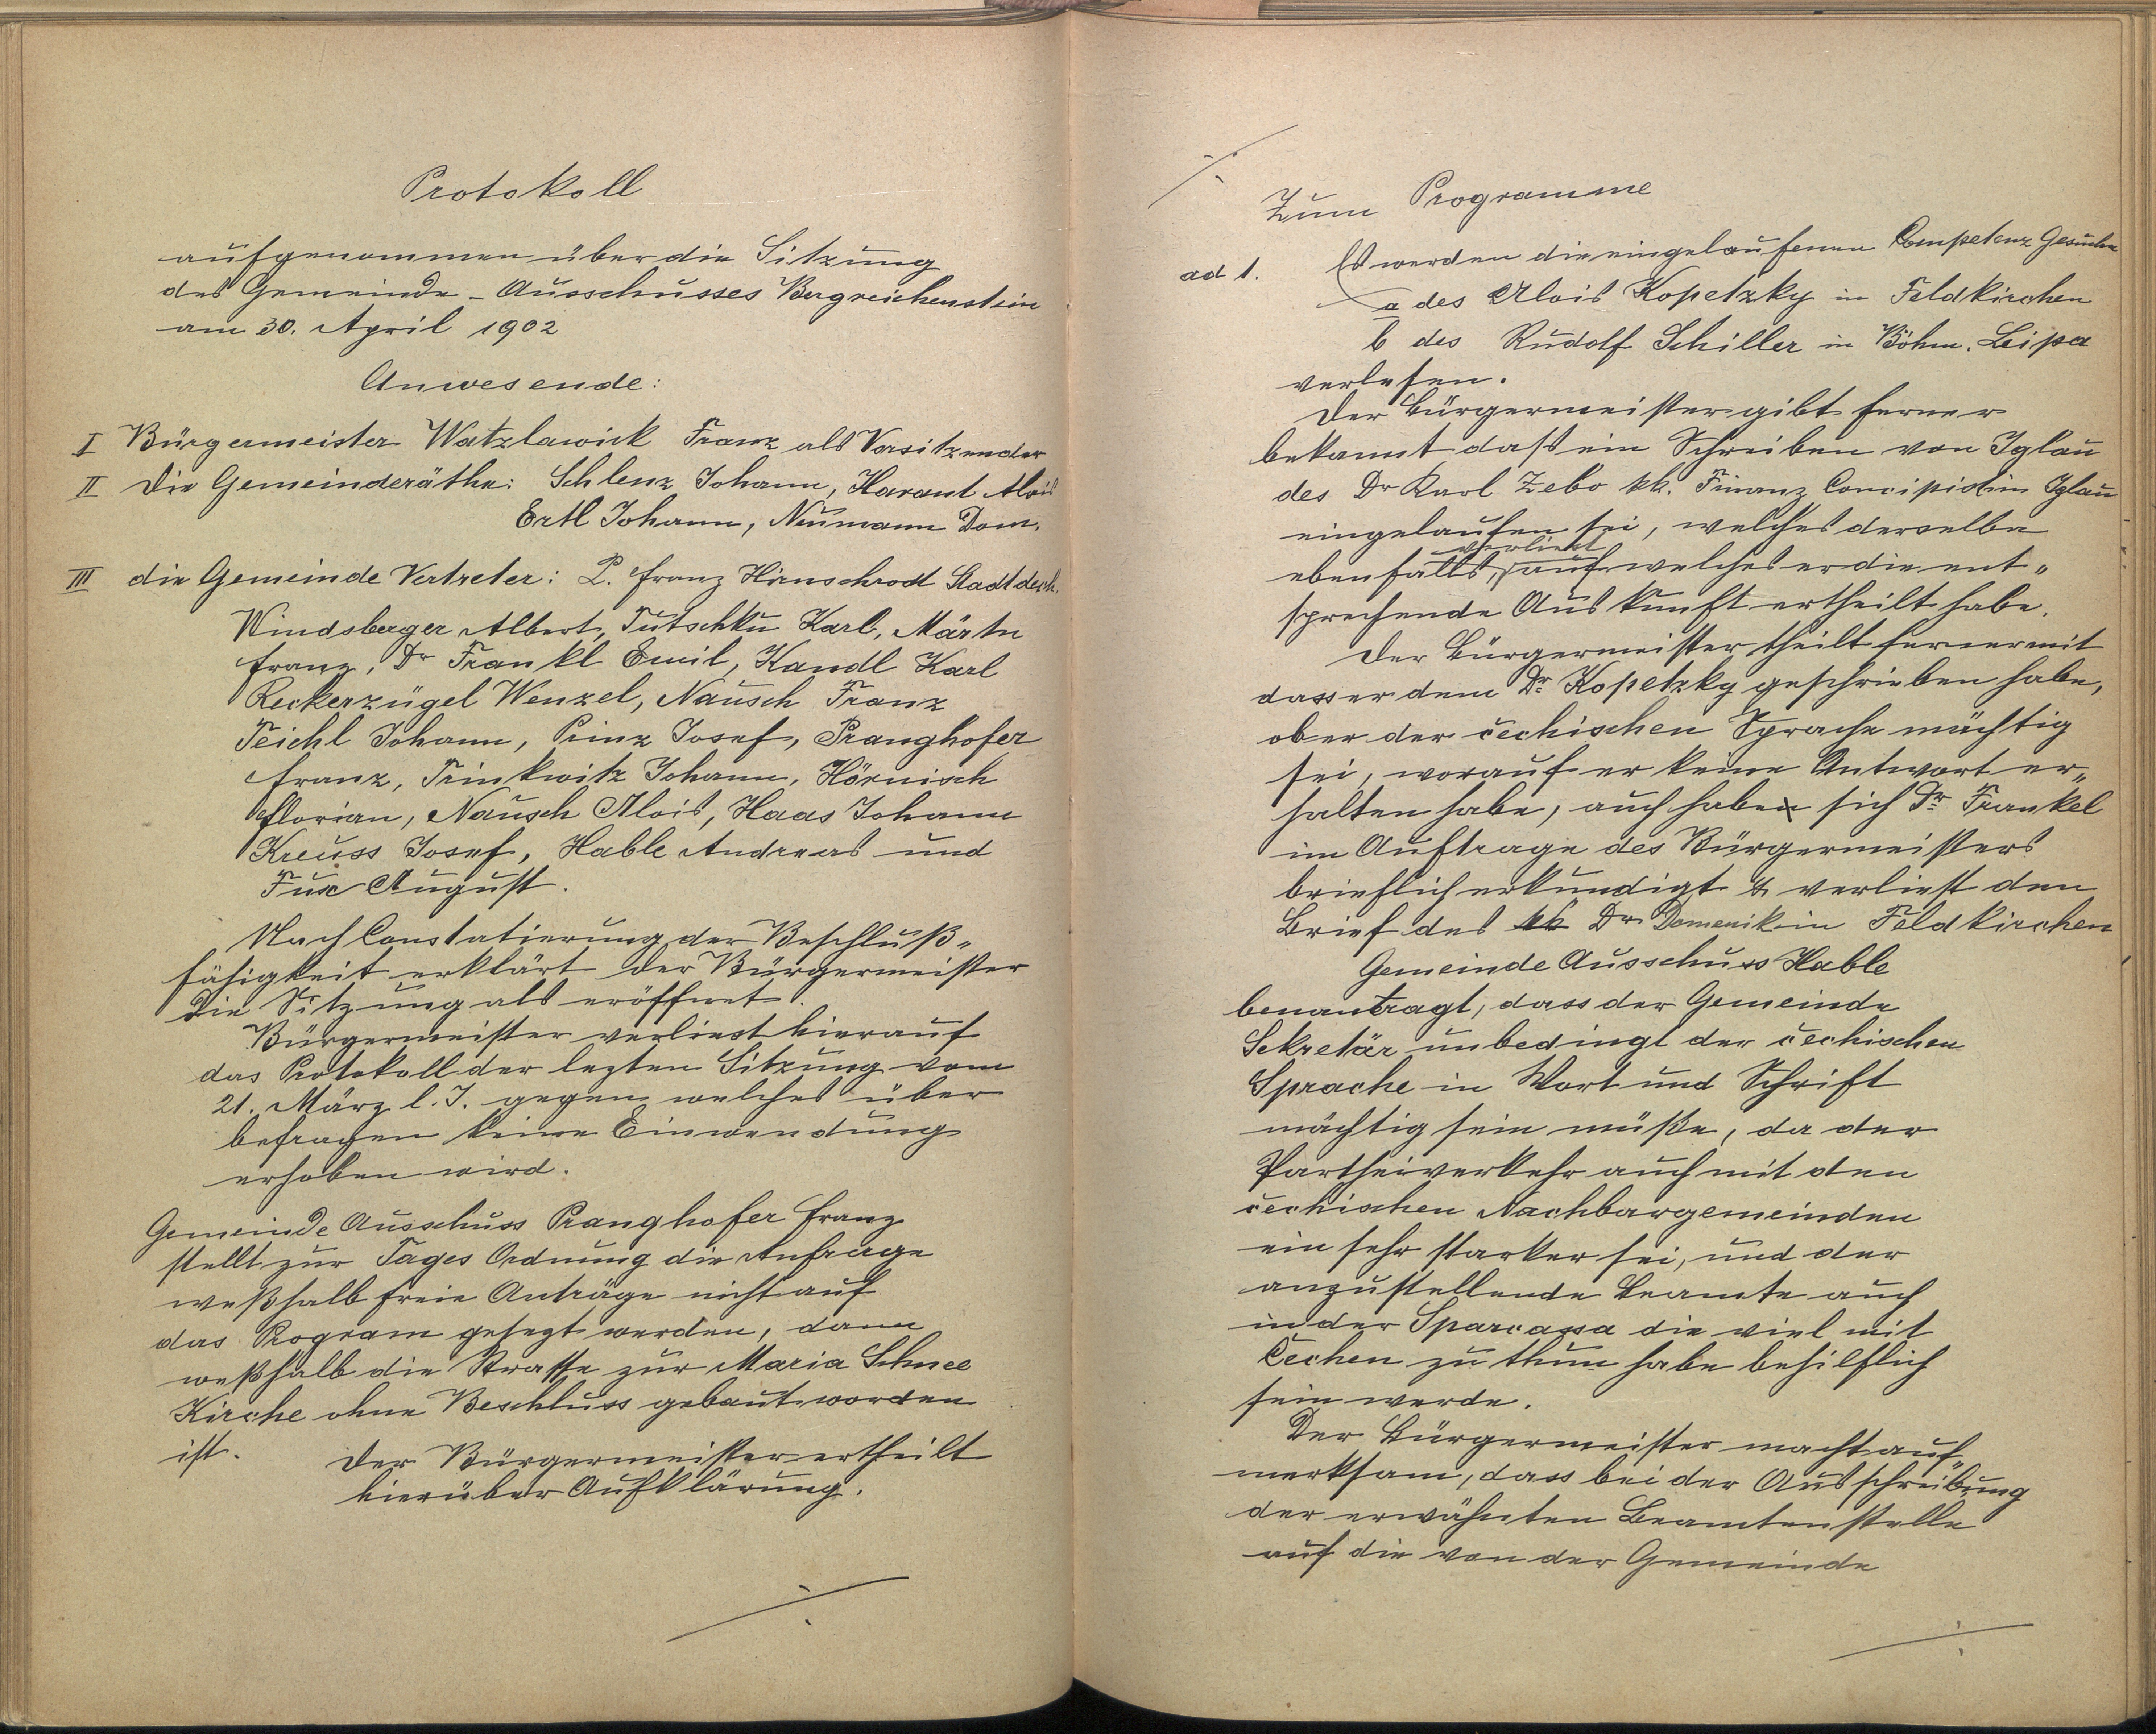 Protokoll
aufgenommen über die Sitzung
des Gemeinde-Ausschusses Bergreichenstein
am 30. April 1902
Anwesende:
I Bürgermeister Watzlawick Franz als Vorsitzender
II Die Gemeinderäthe: Schlenz Johann, Harant Alois
Ertl Johann, Neumann Dom.
III die Gemeinde Vertreter: P. Franz Hirnschrodt Stadtdech.
Windsberger Albert, Tutschku Karl, Märtn
Franz, Dr Frankl Emil, Kandl Karl
Reckerzügel Wenzel, Nausch Franz
Teichl Johann, Prinz Josef, Pranghofer
Franz, Trinkwitz Johann, Hörnisch
Florian, Nausch Alois, Haas Johann
Kreuss Josef, Hable Andreas und
Fux August.
Nach Constatierung der Beschluß„
fähigkeit erklärt der Bürgermeister
die Sitzung als eröffnet.
Bürgermeister verliest hierauf
das Protokoll der lezten Sitzung vom
21. März l. J. gegen welches über
befragen keine Einwendung
erhoben wird.
Gemeinde Ausschuss Pranghofer Franz
stellt zur Tages Ordnung die Anfrage
weßhalb freie Anträge nicht auf
das Program gesezt werden, dann
weßhalb die Strasse zur Maria Schnee
Kirche ohne Beschluss gebaut worden
ist. Der Bürgermeister ertheilt
hierüber Aufklärung.
./.
./.
Zum Programme
ad 1. Es werden die eingelaufenen Competenz Gesuche
a des Alois Kopetzky in Feldkirchen
b des Rudolf Schiller in Böhm. Leipa
verlesen.
Der Bürgermeister gibt ferner
bekannt dass ein Schreiben von Iglau
des Dr Karl Zebo kk. Finanz Concipist in Iglau
eingelaufen sei, welches derselbe
ebenfalls, verliest auf welches er die ent„
sprechende Auskunft ertheilt habe.
Der Bürgermeister theilt ferner mit
dass er dem Dr. Kopetzky geschrieben habe,
ob er der čechischen Sprache mächtig
sei, worauf er keine Antwort er„
halten habe, auch habe sich Dr. Frankel
im Auftrage des Bürgermeisters
brieflich erkundigt & verliest den
Brief des Dr Domenik in Feldkirchen
Gemeinde Ausschuss Hable
beantragt, dass der Gemeinde
Sekretär unbedingt der čechischen
Sprache in Wort und Schrift
mächtig sein müße, da der
Partheiverkehr auch mit den
čechischen Nachbargemeinden
ein sehr starker sei, und der
anzustellende Beamte auch
in der Sparcassa die viel mit
Čechen zu thun habe behilflich
sein werde.
Der Bürgermeister macht auf„
merksam, dass bei der Ausschreibung
der erwähnten Beamtenstelle
auf die von der Gemeinde
./.